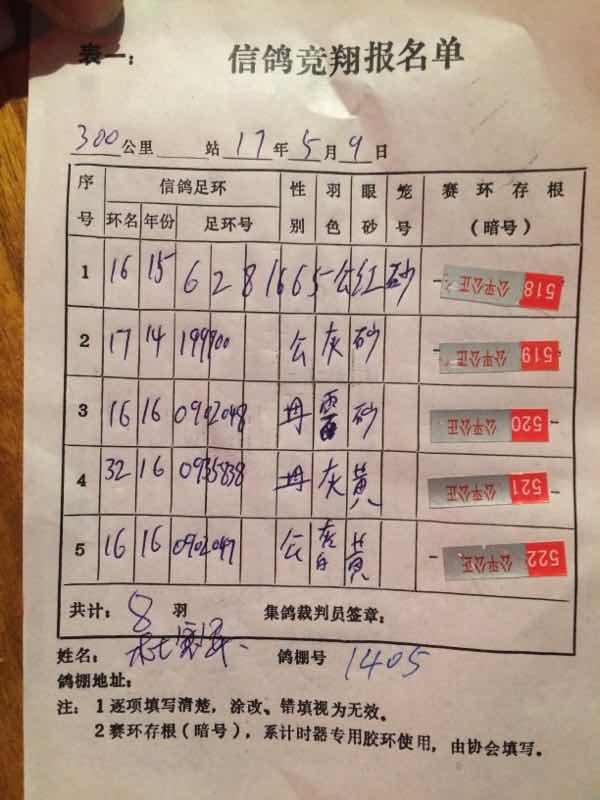 表一：
信鸽竞翔报名单
300公里 站 17年5月9日
序号 信鸽足环 性别 羽色 眼砂 笼号 赛环存根（暗号）
环名 年份 足环号
1 16 15 6281665 公 红 砂 公平公正 518
2 17 14 199900 公 灰 砂 公平公正 519
3 16 16 0902048 母 砂 公平公正 520
4 32 16 0935838 母 灰 黄 公平公正 521
5 16 16 0902047 公 黄 公平公正 522
共计：8羽 集鸽裁判员签章：
姓名： 鸽棚号 1405
鸽棚地址：
注：1逐项填写清楚，涂改、错填视为无效。
2赛环存根（暗号），系计时器专用胶环使用，由协会填写。